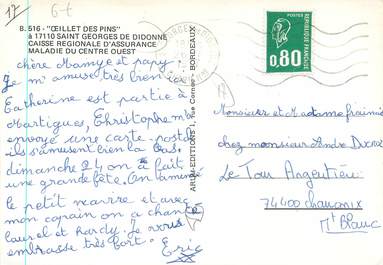 17
B. 516 - "ŒILLET DES PINS"
à 17110 SAINT GEORGES DE DIDONNE
CAISSE REGIONALE D'ASSURANCE
MALADIE DU CENTRE OUEST
chère Mamye et papy
Je m'amuse très bien ici
Catherine est partie à
Martigues, Christophe m'a
envoyé une carte postale
ils s'amusent bien la bas.
dimanche 24 on a fait
une grande fête. On a mimé
le petit navire et avec
mon copain on a chanté
Laurel et hardy. Je vous
embrasse très fort
Eric
ARJAC-EDITIONS 1, rue Cornac - BORDEAUX
REPUBLIQUE FRANÇAISE
0,80
Monsieur et Madame
chez monsieur André
Le Tour Argentière
74400 chamonix
Mt Blanc